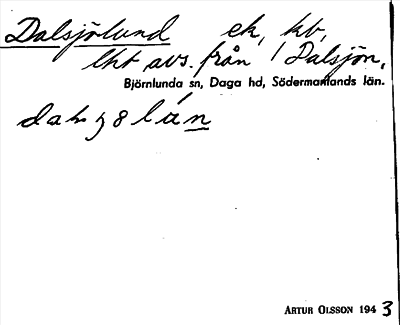 Dalsjölund ek, kb,
lht avs. från 1 Dalsjön,
Björnlunda sn, Daga hd, Södermanlands län.
ARTUR OLSSON 1943